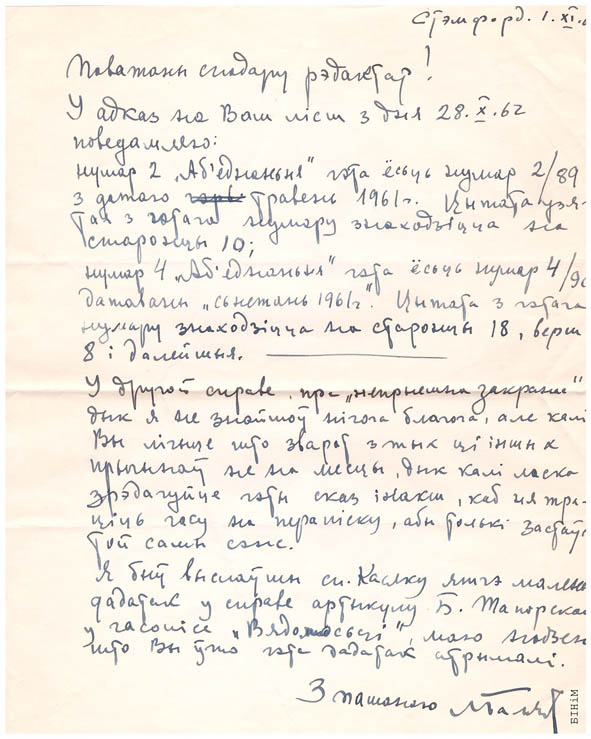 Стэмфорд. 1. XI.
Паважаны спадару рэдактар!
У адказ на Ваш ліст з дня 28.X.62
паведамляю:
нумар 2 „Аб'еднаньня" гэта ёсьць нумар 2/89
з датаю травень 1961 г. Цытата узя-
тая з гэтага нумару знаходзіцца на
старонцы 10;
нумар 4 „Аб'еднаньня" гэта ёсьць нумар 4/9
датаваны „сьнежань 1961 г". Цытата з гэтага
нумару знаходзіцца на старонцы 18, верш
8 і далейшыя.
У другой справе, пра „непрыемна закранае"
дык я не знайшоў нічога благога, але калі
Вы лічыце што зварот з тых ці іншых
прычынаў не на месцы, дык калі ласка
зрэдагуйце гэты сказ інакш, каб ня тра-
ціць часу на перапіску, абы толькі застаў
той самы сэнс.
Я быў выслаўшы сп. Касяку яшчэ мален
дадатак у справе артыкулу Б. Тапорскаг
у часопісе „Вядомосьці", маю надзею
што Вы ўжо гэты дадатак атрымалі.
З пашанаю
БІНіМ